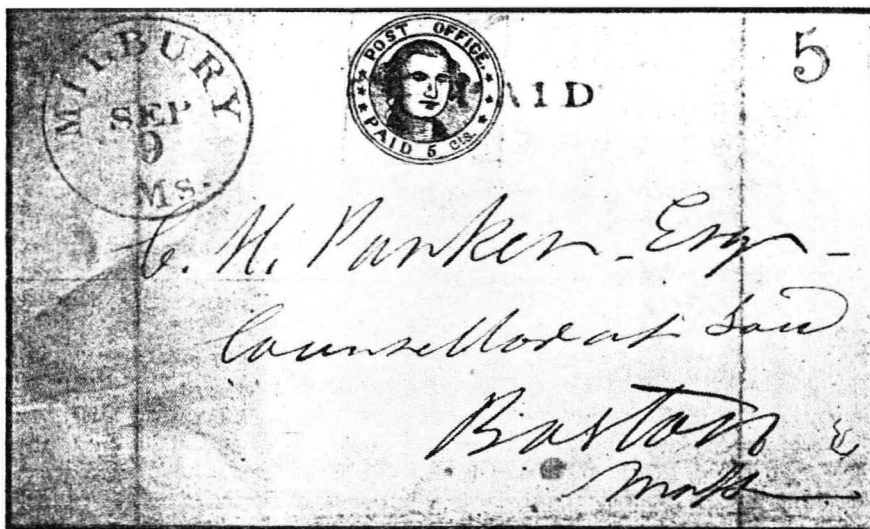 MILBURY
SEP
9
MS.
POST OFFICE.
PAID 5 Cts.
PAID
5
C. H. Parker - Esq -
Counsellor at Law
Boston
Mass